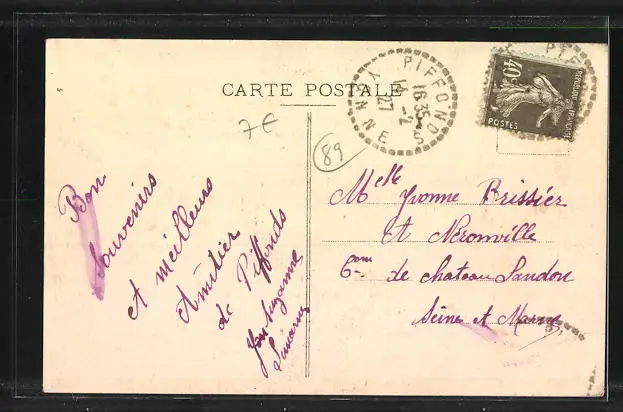 CARTE POSTALE
PIFFONDS
YONNE
16 35
14 -2
27
40c
REPUBLIQUE FRANÇAISE
POSTES
7€
89
Bon
Souvenirs
et meilleurs
Amitier
de Piffonds
Suzanne
Melle Yvonne Brissier
A Néronville
Com de chateau Landon
Seine et Marne